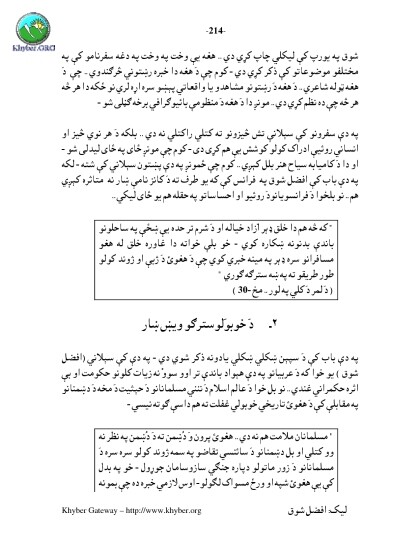 -214-
Khyber.ORG
شوق په يورپ کې ليکلي چاپ کړي دي.. هغه يې وخت په وخت په دغه سفرنامو کې په
مختلفو موضوعاتو کې ذکر کړي دي - کوم چې دَ هغه دا خبره رښتونې څرګندوي . چې دَ
هغه ټوله شاعري.. دَ هغه دَ رښتونو مشاهدو يا واقعاتي پېښو سره اړه لري نو ځکه دا هر څه
هر څه چې ده نظم کړي دي.. مونږ دا دَ هغه دَ منظومې بائيوګرافي برخه ګڼلی شو -
په دې سفرونو کې سېلاني تش څيزونو ته کتلي راکتلي نه دي .. بلکه دَ هر نوي څيز او
انساني روئيې ادراک کولو کوشش يې هم کړی دی - کوم چې مونږ ځای په ځای ليدلی شو -
او دا دَ کاميابه سياح هنر بلل کېږي.. کوم چې ځمونږ په دې پښتون سېلاني کې شته - لکه
په دې باب کې افضل شوق په فرانس کې که يو طرف ته دَ کانز نامې ښار نه متاثره کېږي
هم .. نو بلخوا دَ فرانسويانو دَ روئيو او احساساتو په حقله هم يو ځای ليکي..
" که څه هم دا خلق ډېر آزاد خياله او دَ شرم تر حده بې ښځې په ساحلونو
باندې بدنونه ښکاره کوي - خو بلې خواته دا غاوره خلق له هغو
مسافرانو سره ډېر په مينه خبرې کوي چې دَ هغوئ دَ ژبې او ژوند کولو
طور طريقو ته په ښه سترګه ګوري "
( دَ لمر دَ کلي په لور .. مخ- 30 )
۲ـ دَ خوبولو سترګو ويښ ښار
په دې باب کې دَ سپېن ښکلي ښکلي يادونه ذکر شوي دي - په دې کې سېلاني (افضل
شوق ) يو خوا که دَ عربيانو په دې هېواد باندې تر اوو سوو نه زيات کلونو حکومت او بې
اثره حکمراني غندي.. نو بل خوا دَ عالم اسلام دَ ننني مسلمانانو دَ حيثيت دَ مخه دَ دښمنانو
په مقابلې کې دَ هغوئ تاريخي خوبولي غفلت ته هم داسې ګوته نيسي-
" مسلمانان ملامت هم نه دي.. هغوئ پرون دَ دُښمن ته دَ دُښمن په نظر نه
وو کتلي او بل دښمنانو دَ سائنسي تقاضو په سمه ژوند کولو سره سره دَ
مسلمانانو دَ زور ماتولو دپاره جنګي سازوسامان جوړول - خو په بدل
کې يې هغوئ شپه او ورځ مسواک لګولو - اوس لازمي خبره ده چې بمونه
Khyber Gateway – http://www.khyber.org
ليک: افضل شوق